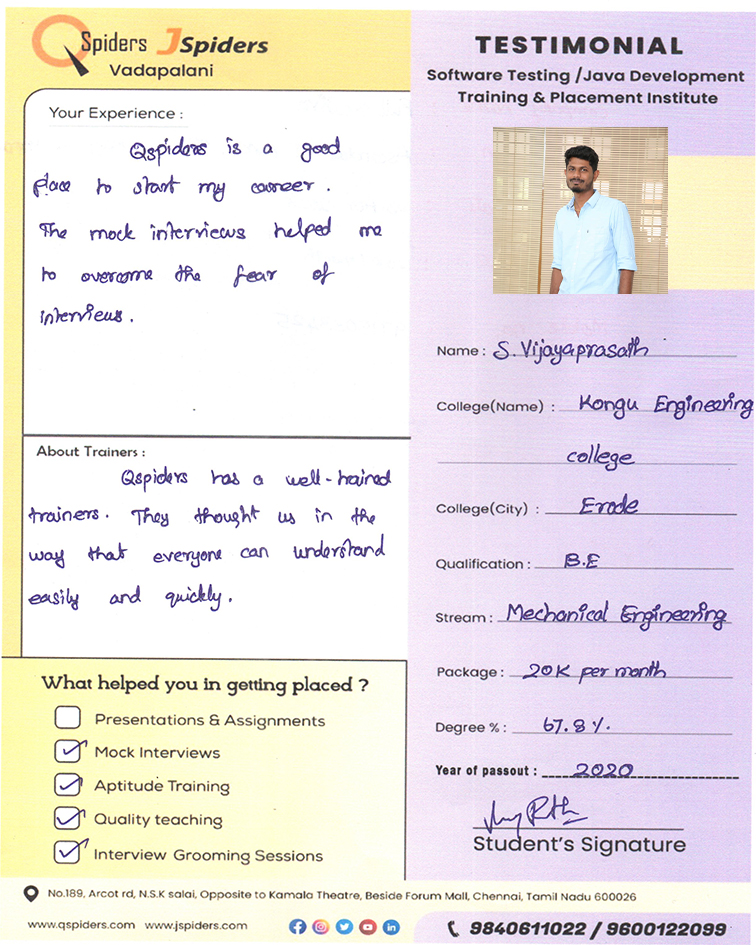 QSpiders JSpiders
Vadapalani
Your Experience :
Qspiders is a good
place to start my career.
The mock interviews helped me
to overcome the fear of
interviews.
About Trainers :
Qspiders has a well-trained
trainers. They thought us in the
way that everyone can understand
easily and quickly.
What helped you in getting placed ?
Presentations & Assignments
Mock Interviews
Aptitude Training
Quality teaching
Interview Grooming Sessions
TESTIMONIAL
Software Testing /Java Development
Training & Placement Institute
Name : S. Vijayaprasath
College(Name) : Kongu Engineering
college
College(City) : Erode
Qualification : B.E
Stream : Mechanical Engineering
Package : 20K per month
Degree % : 67.8 %.
Year of passout : 2020
Student's Signature
No.189, Arcot rd, N.S.K salai, Opposite to Kamala Theatre, Beside Forum Mall, Chennai, Tamil Nadu 600026
www.qspiders.com www.jspiders.com
9840611022 / 9600122099